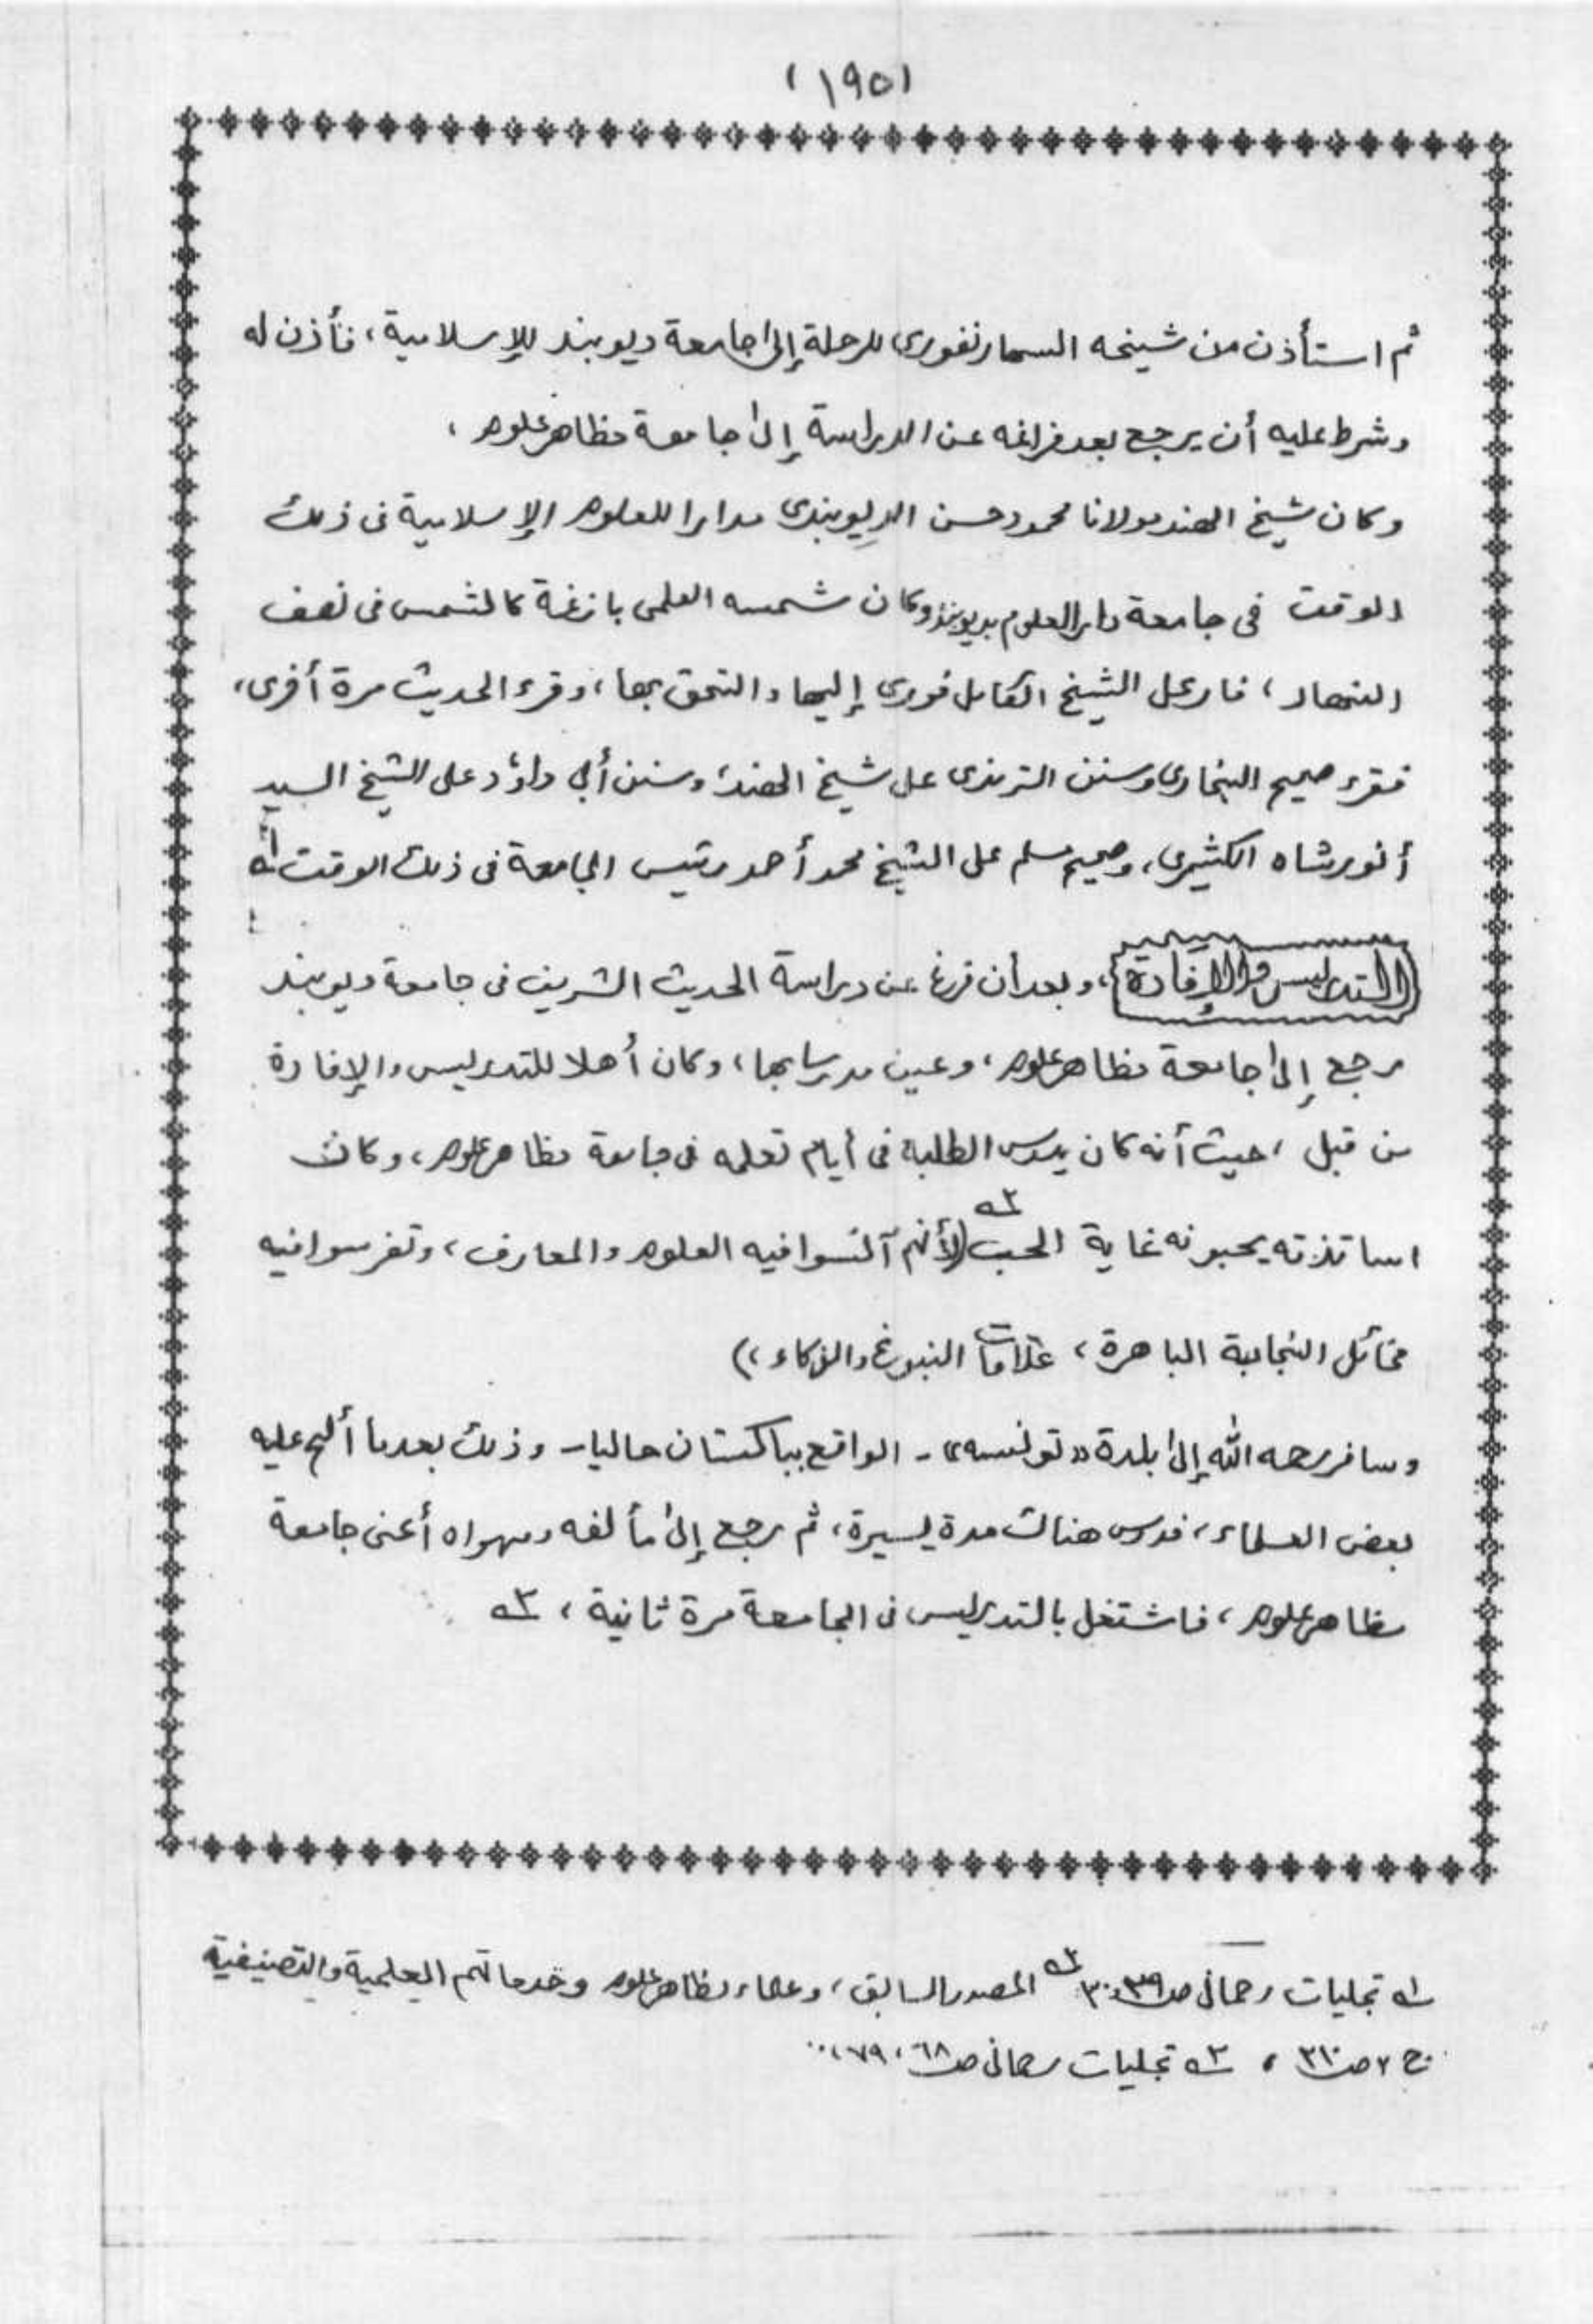 (١٩٥)
ثم استأذن من شيخه السهارنفوري للرحلة إلى جامعة ديوبند للإسلامية، فأذن له
وشرط عليه أن يرجع بعد فراغه عن الدراسة إلى جامعة مظاهر علوم،
وكان شيخ الهند مولانا محمود حسن الديوبندي مدارا للعلوم الإسلامية في ذلك
الوقت في جامعة دار العلوم بديوبند وكان شمسه العلمي بازغة كالشمس في نصف
النهار، فارتحل الشيخ الكامل فوري إليها والتحق بها، وقرء الحديث مرة أخرى،
فقرء صحيح البخاري وسنن الترمذي على شيخ الهند، وسنن أبي داؤد على الشيخ السيد
أنور شاه الكشميري، وصحيح مسلم على الشيخ محمد أحمد رئيس الجامعة في ذلك الوقت ١ـه
التدريس والإفادة، وبعد أن فرغ عن دراسة الحديث الشريف في جامعة ديوبند
رجع إلى جامعة مظاهر علوم، وعين مدرسا بها، وكان أهلا للتدريس والإفادة
من قبل، حيث أنه كان يدرس الطلبة في أيام تعلمه في جامعة مظاهر علوم، وكان
اساتذته يحبونه غاية الحب ٢ـه (لأنهم آنسوا فيه العلوم والمعارف، وتفرسوا فيه
مخائل النجابة الباهرة، علامات النبوغ والذكاء،)
وسافر رحمه الله إلى بلدة «تونسه» - الواقع بباكستان حاليا - وذلك بعدما ألح عليه
بعض العلماء، فدرس هناك مدة يسيرة، ثم رجع إلى مألفه ومهواه أعني جامعة
مظاهر علوم، فاشتغل بالتدريس في الجامعة مرة ثانية، ٣ـه
١ـه تجليات رحماني ص ٣٩، ٣٠ ٢ـه المصدر السابق، وعلماء مظاهر علوم وخدماتهم العلمية والتصنيفية
ج ٢ ص ٣١٠، ٣ـه تجليات رحماني ص ٦٨، ٧٩،